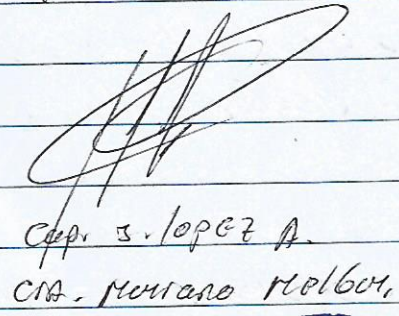 Cap. J. lopez A.
CIA. Mariano Melgar,